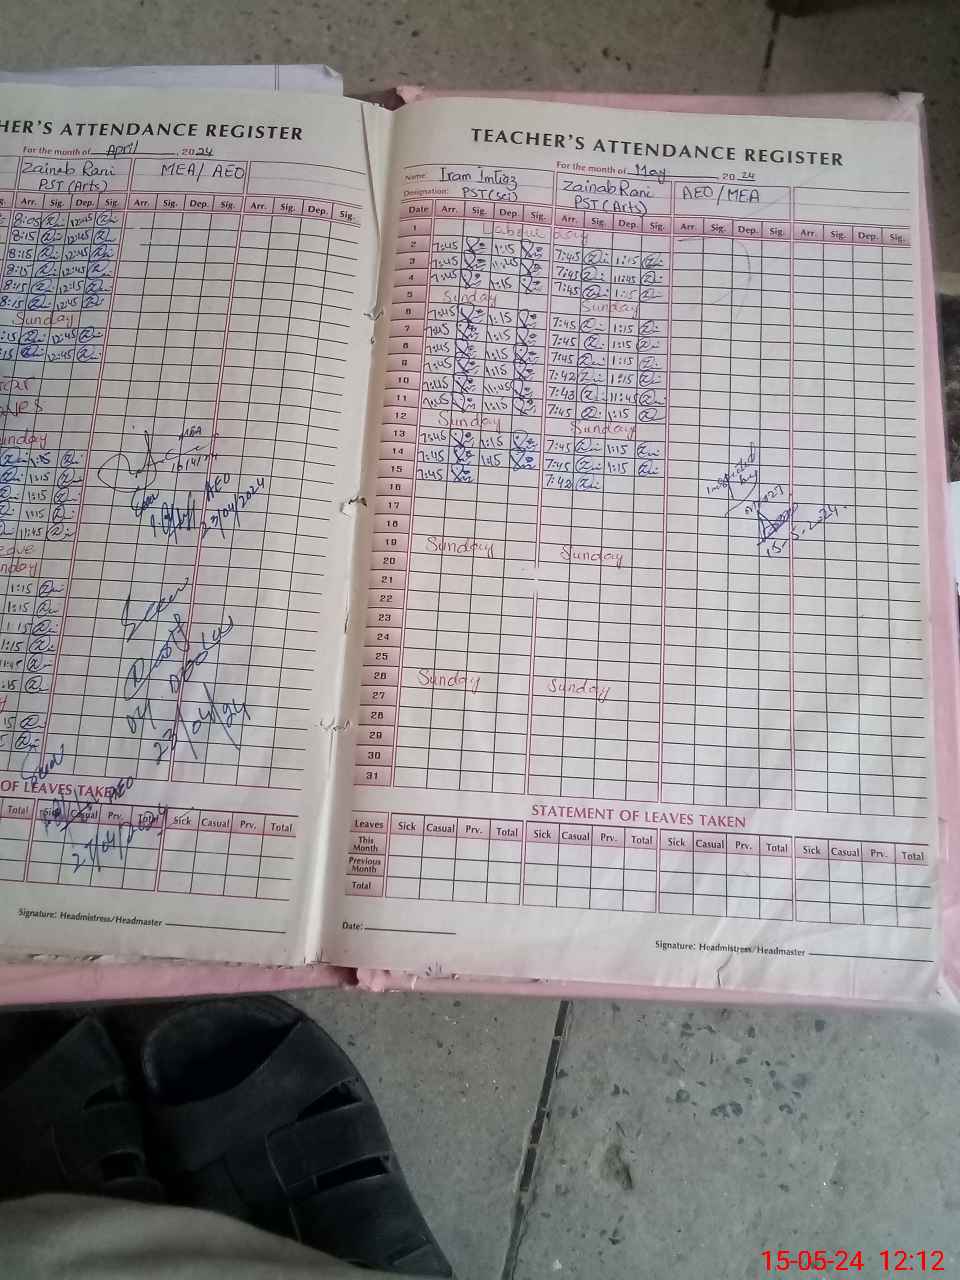 HER'S ATTENDANCE REGISTER
For the month of April, 2024
Zainab Rani MEA/ AEO
PST (Arts)
Arr. Sig. Dep. Sig. Arr. Sig. Dep. Sig. Arr. Sig. Dep. Sig.
8:05 12:45
8:15 12:45
8:15 12:45
8:15 12:45
8:15 12:15
8:15 12:45
Sunday
:15 12:45
:15 12:45
unday
1:15
1:15
1:15
1:15
11:45
nday
1:15
1:15
1:15
1:15
11:45
:15
15
5
16/4/24
AEO
23/04/2024
23/04/24
AEO
27/04/2024
OF LEAVES TAKEN
Total Sick Casual Prv. Total Sick Casual Prv. Total
Signature: Headmistress/Headmaster
TEACHER'S ATTENDANCE REGISTER
For the month of May 2024
Name: Iram Imtiaz Zainab Rani AEO / MEA
Designation: PST(Sci) PST (Arts)
Date Arr. Sig. Dep. Sig. Arr. Sig. Dep. Sig. Arr. Sig. Dep. Sig. Arr. Sig. Dep. Sig.
1 Labour day
2 7:45 1:15 7:45 1:15
3 7:45 11:45 7:45 11:45
4 7:45 1:15 7:45 1:15
5 Sunday Sunday
6 7:45 1:15 7:45 1:15
7 7:45 1:15 7:45 1:15
8 7:45 1:15 7:45 1:15
9 7:45 1:15 7:42 1:15
10 7:45 11:45 7:43 11:45
11 7:45 1:15 7:45 1:15
12 Sunday Sunday
13 7:45 1:15 7:45 1:15
14 7:45 1:45 7:45 1:15
15 7:45 7:42
16
17
18
19 Sunday Sunday
20
21
22
23
24
25
26 Sunday Sunday
27
28
29
30
31
Inspected
by
15-5-2024.
STATEMENT OF LEAVES TAKEN
Leaves Sick Casual Prv. Total Sick Casual Prv. Total Sick Casual Prv. Total Sick Casual Prv. Total
This Month
Previous Month
Total
Date:
Signature: Headmistress/Headmaster
15-05-24 12:12